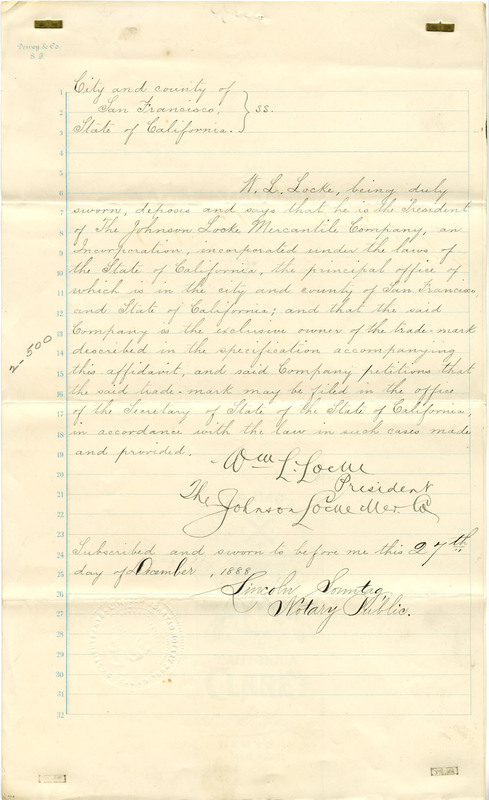 Perry & Co.
S. F.
City and county of
San Francisco. } ss.
State of California.
W. L. Locke, being duly
sworn, deposes and says that he is the President
of The Johnson Locke Mercantile Company, an
Incorporation, incorporated under the laws of
the State of California, the principal office of
which is in the city and county of San Francisco
and State of California; and that the said
Company is the exclusive owner of the trade-mark
described in the specification accompanying
this affidavit, and said Company petitions that
the said trade-mark may be filed in the office
of the Secretary of State of the State of California,
in accordance with the law in such cases made
and provided.
Wm L. Locke
President
The Johnson Locke Mer. Co
Subscribed and sworn to before me this 27th
day of December, 1888
Lincoln Sonntag
Notary Public.
2-500
1
2
3
4
5
6
7
8
9
10
11
12
13
14
15
16
17
18
19
20
21
22
23
24
25
26
27
28
29
30
31
32